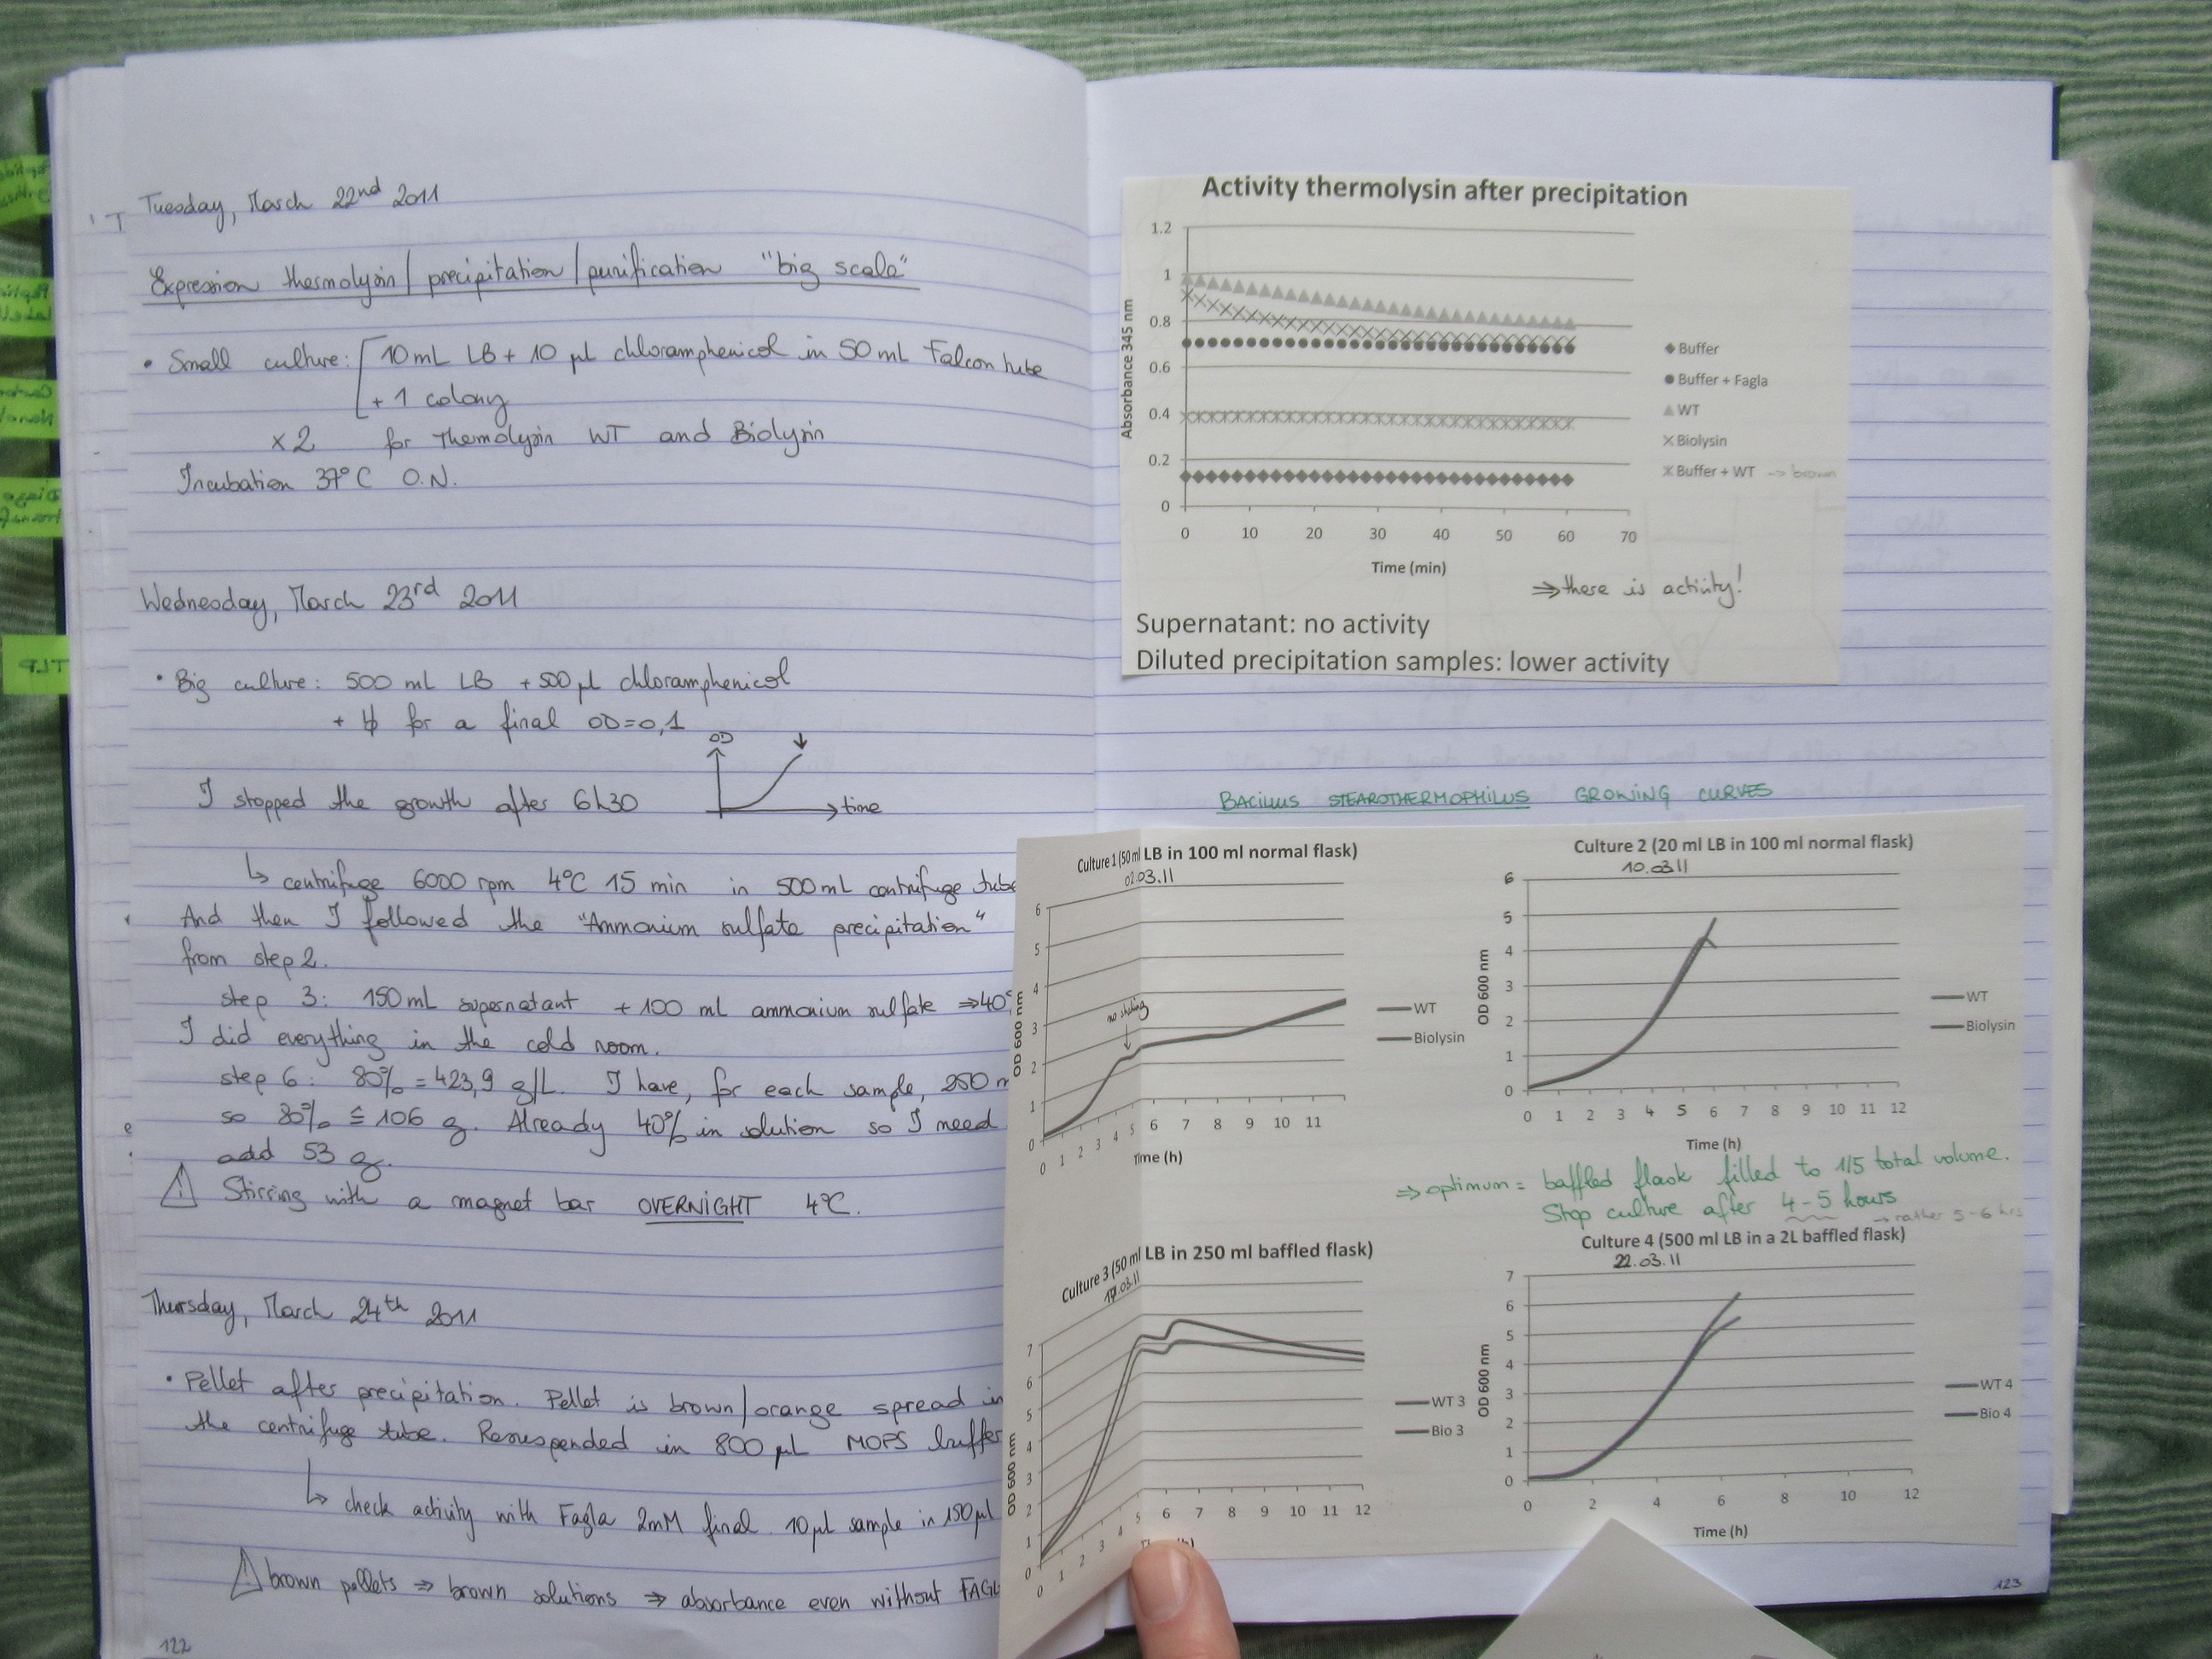 Tuesday, March 22nd 2011
Expression thermolysin / precipitation / purification "big scale"
• Small culture: 10 mL LB + 10 µl chloramphenicol in 50 mL Falcon tube
+ 1 colony
x2 for Thermolysin WT and Biolysin
Incubation 37°C O.N.
Wednesday, March 23rd 2011
• Big culture: 500 mL LB + 500 µl chloramphenicol
+ for a final OD=0,1
OD
I stopped the growth after 6h30
time
↳ centrifuge 6000 rpm 4°C 15 min in 500 mL centrifuge tube
And then I followed the "Ammonium sulfate precipitation"
from step 2.
step 3: 150 mL supernatant + 100 ml ammonium sulfate ⇒ 40
I did everything in the cold room.
step 6: 80% = 423,9 g/L. I have, for each sample, 250 m
so 80% ≙ 106 g. Already 40% in solution so I need
add 53 g.
⚠ Stirring with a magnet bar OVERNIGHT 4°C.
Thursday, March 24th 2011
• Pellet after precipitation. Pellet is brown/orange spread in
the centrifuge tube. Resuspended in 800 µL MOPS buffer
↳ check activity with Fagla 2mM final. 10 µl sample in 150 µl
⚠ brown pellets ⇒ brown solutions ⇒ absorbance even without FAGL
122
TLP
Activity thermolysin after precipitation
Absorbance 345 nm
1.2
1
0.8
0.6
0.4
0.2
0
0 10 20 30 40 50 60 70
Time (min)
Buffer
Buffer + Fagla
WT
Biolysin
Buffer + WT → brown
⇒ there is activity!
Supernatant: no activity
Diluted precipitation samples: lower activity
BACILLUS STEAROTHERMOPHILUS GROWING CURVES
Culture 1 (50 ml LB in 100 ml normal flask)
02.03.11
OD 600 nm
6
5
4
3
2
1
0
no shaking
0 1 2 3 4 5 6 7 8 9 10 11
Time (h)
WT
Biolysin
Culture 2 (20 ml LB in 100 ml normal flask)
10.03.11
OD 600 nm
6
5
4
3
2
1
0
0 1 2 3 4 5 6 7 8 9 10 11 12
Time (h)
WT
Biolysin
⇒ optimum = baffled flask filled to 1/5 total volume.
Stop culture after 4-5 hours
→ rather 5-6 hrs
Culture 3 (50 ml LB in 250 ml baffled flask)
17.03.11
OD 600 nm
7
6
5
4
3
2
1
0
0 1 2 3 4 5 6 7 8 9 10 11 12
WT 3
Bio 3
Culture 4 (500 ml LB in a 2L baffled flask)
22.03.11
OD 600 nm
7
6
5
4
3
2
1
0
0 2 4 6 8 10 12
Time (h)
WT 4
Bio 4
123